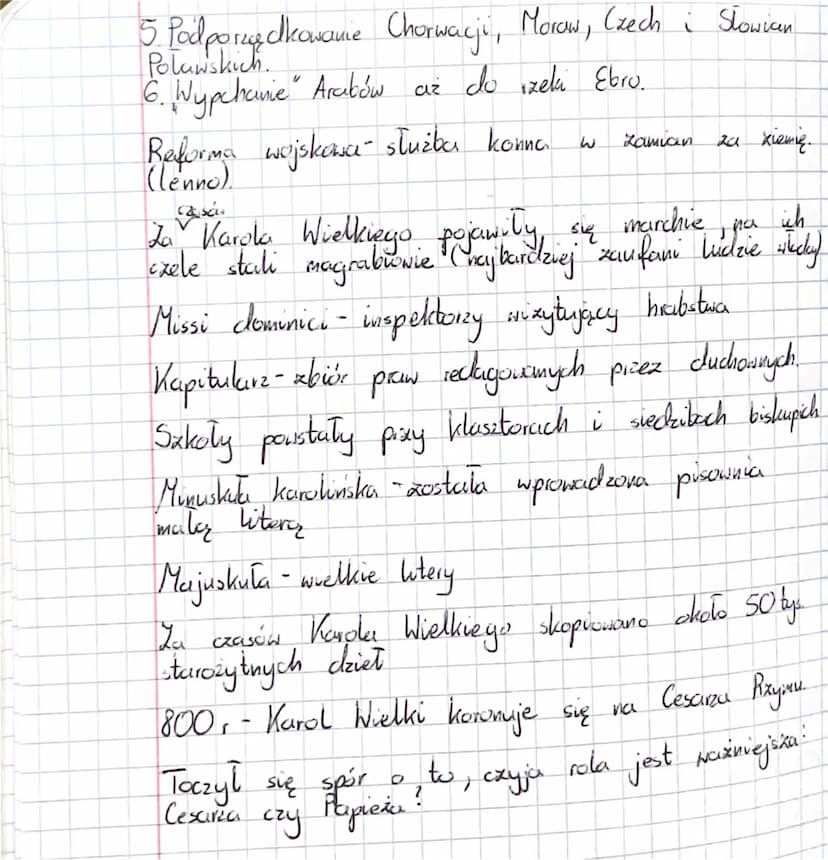 5. Podporządkowanie Chorwacji, Moraw, Czech i Słowian
Poławskich.
6. "Wypchanie" Arabów aż do rzeki Ebro.
Reforma wojskowa - służba konna w zamian za ziemię.
(lenno).
Za czasów Karola Wielkiego pojawiły się marchie, na ich
czele stali magrabiowie (najbardziej zaufani ludzie władcy)
Missi dominici - inspektorzy wizytujący hrabstwa
Kapitularz - zbiór praw redagowanych przez duchownych.
Szkoły powstały przy klasztorach i siedzibach biskupich
Minuskuła karolińska - została wprowadzona pisownia
małą literą
Majuskuła - wielkie litery
Za czasów Karola Wielkiego skopiowano około 50 tys.
starożytnych dzieł
800 r - Karol Wielki koronuje się na Cesarza Rzymu.
Toczył się spór o to, czyja rola jest ważniejsza:
Cesarza czy Papieża?